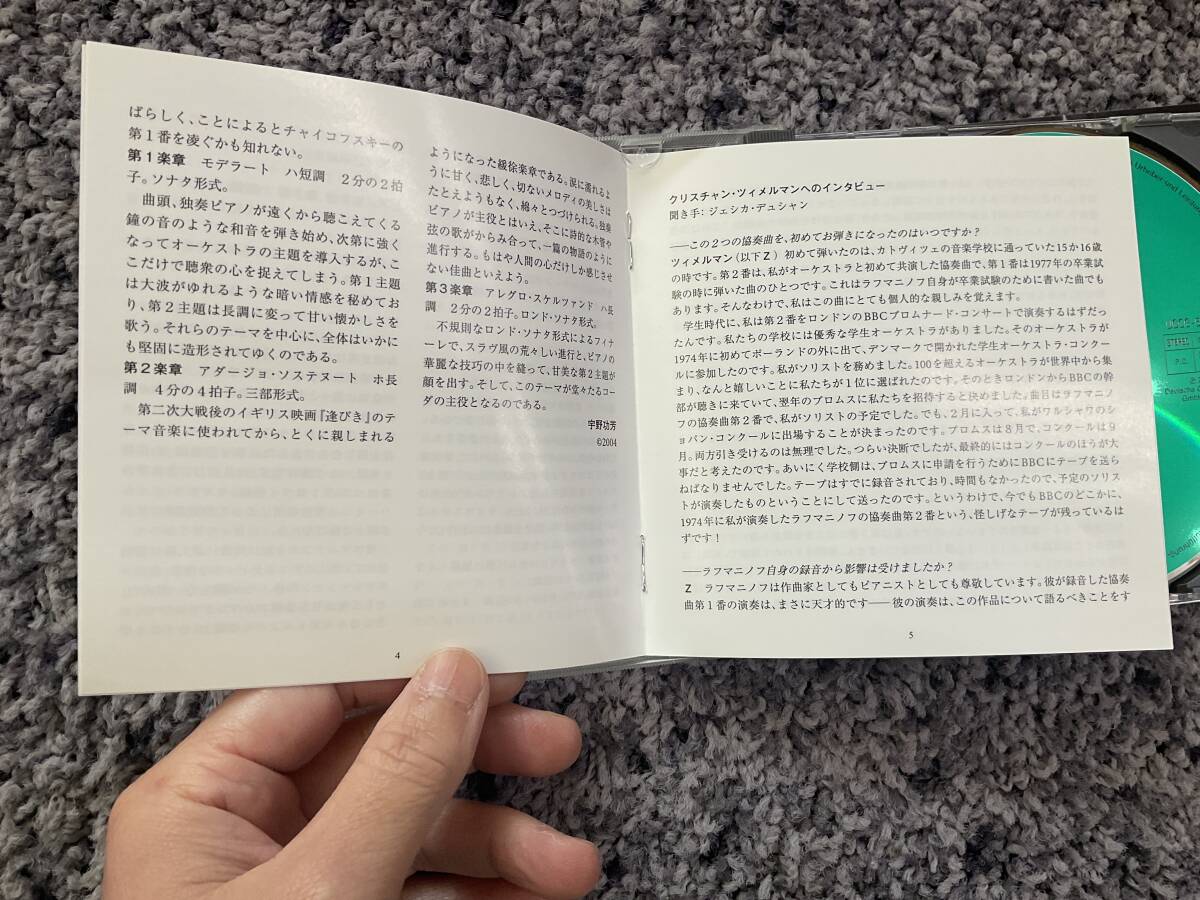 ばらしく、ことによるとチャイコフスキーの
第1番を凌ぐかも知れない。
第1楽章 モデラート ハ短調 2分の2拍
子。ソナタ形式。
曲頭、独奏ピアノが遠くから聴こえてくる
鐘の音のような和音を弾き始め、次第に強く
なってオーケストラの主題を導入するが、こ
こだけで聴衆の心を捉えてしまう。第1主題
は大波がゆれるような暗い情感を秘めてお
り、第2主題は長調に変って甘い懐かしさを
歌う。それらのテーマを中心に、全体はいかに
も堅固に造形されてゆくのである。
第2楽章 アダージョ・ソステヌート ホ長
調 4分の4拍子。三部形式。
第二次大戦後のイギリス映画『逢びき』のテ
ーマ音楽に使われてから、とくに親しまれる
ようになった緩徐楽章である。涙に濡れるよ
うに甘く、悲しく、切ないメロディの美しさは
たとえようもなく、綿々とつづけられる。独奏
ピアノが主役とはいえ、そこに詩的な木管や
弦の歌がからみ合って、一篇の物語のように
進行する。もはや人間の心だけしか感じさせ
ない佳曲といえよう。
第3楽章 アレグロ・スケルツァンド ハ長
調 2分の2拍子。ロンド・ソナタ形式。
不規則なロンド・ソナタ形式によるフィナ
ーレで、スラヴ風の荒々しい進行と、ピアノの
華麗な技巧の中を縫って、甘美な第2主題が
顔を出す。そして、このテーマが堂々たるコー
ダの主役となるのである。
宇野功芳
©2004
4
クリスチャン・ツィメルマンへのインタビュー
聞き手：ジェシカ・デュシャン
――この2つの協奏曲を、初めてお弾きになったのはいつですか？
ツィメルマン（以下Z） 初めて弾いたのは、カトヴィツェの音楽学校に通っていた15か16歳
の時です。第2番は、私がオーケストラと初めて共演した協奏曲で、第1番は1977年の卒業試
験の時に弾いた曲のひとつです。これはラフマニノフ自身が卒業試験のために書いた曲でも
あります。そんなわけで、私はこの曲にとても個人的な親しみを覚えます。
学生時代に、私は第2番をロンドンのBBCプロムナード・コンサートで演奏するはずだっ
たんです。私たちの学校には優秀な学生オーケストラがありました。そのオーケストラが
1974年に初めてポーランドの外に出て、デンマークで開かれた学生オーケストラ・コンクー
ルに参加したのです。私がソリストを務めました。100を超えるオーケストラが世界中から集
まり、なんと嬉しいことに私たちが1位に選ばれたのです。そのときロンドンからBBCの幹
部が聴きに来ていて、翌年のプロムスに私たちを招待すると決めました。曲目はラフマニノ
フの協奏曲第2番で、私がソリストの予定でした。でも、2月に入って、私がワルシャワのシ
ョパン・コンクールに出場することが決まったのです。プロムスは8月で、コンクールは9
月。両方引き受けるのは無理でした。つらい決断でしたが、最終的にはコンクールのほうが大
事だと考えたのです。あいにく学校側は、プロムスに申請を行うためにBBCにテープを送ら
ねばなりませんでした。テープはすでに録音されており、時間もなかったので、予定のソリス
トが演奏したものということにして送ったのです。というわけで、今でもBBCのどこかに、
1974年に私が演奏したラフマニノフの協奏曲第2番という、怪しげなテープが残っているは
ずです！
――ラフマニノフ自身の録音から影響は受けましたか？
Z ラフマニノフは作曲家としてもピアニストとしても尊敬しています。彼が録音した協奏
曲第1番の演奏は、まさに天才的です――彼の演奏は、この作品について語るべきことをす
5
Urheber-und
STEREO